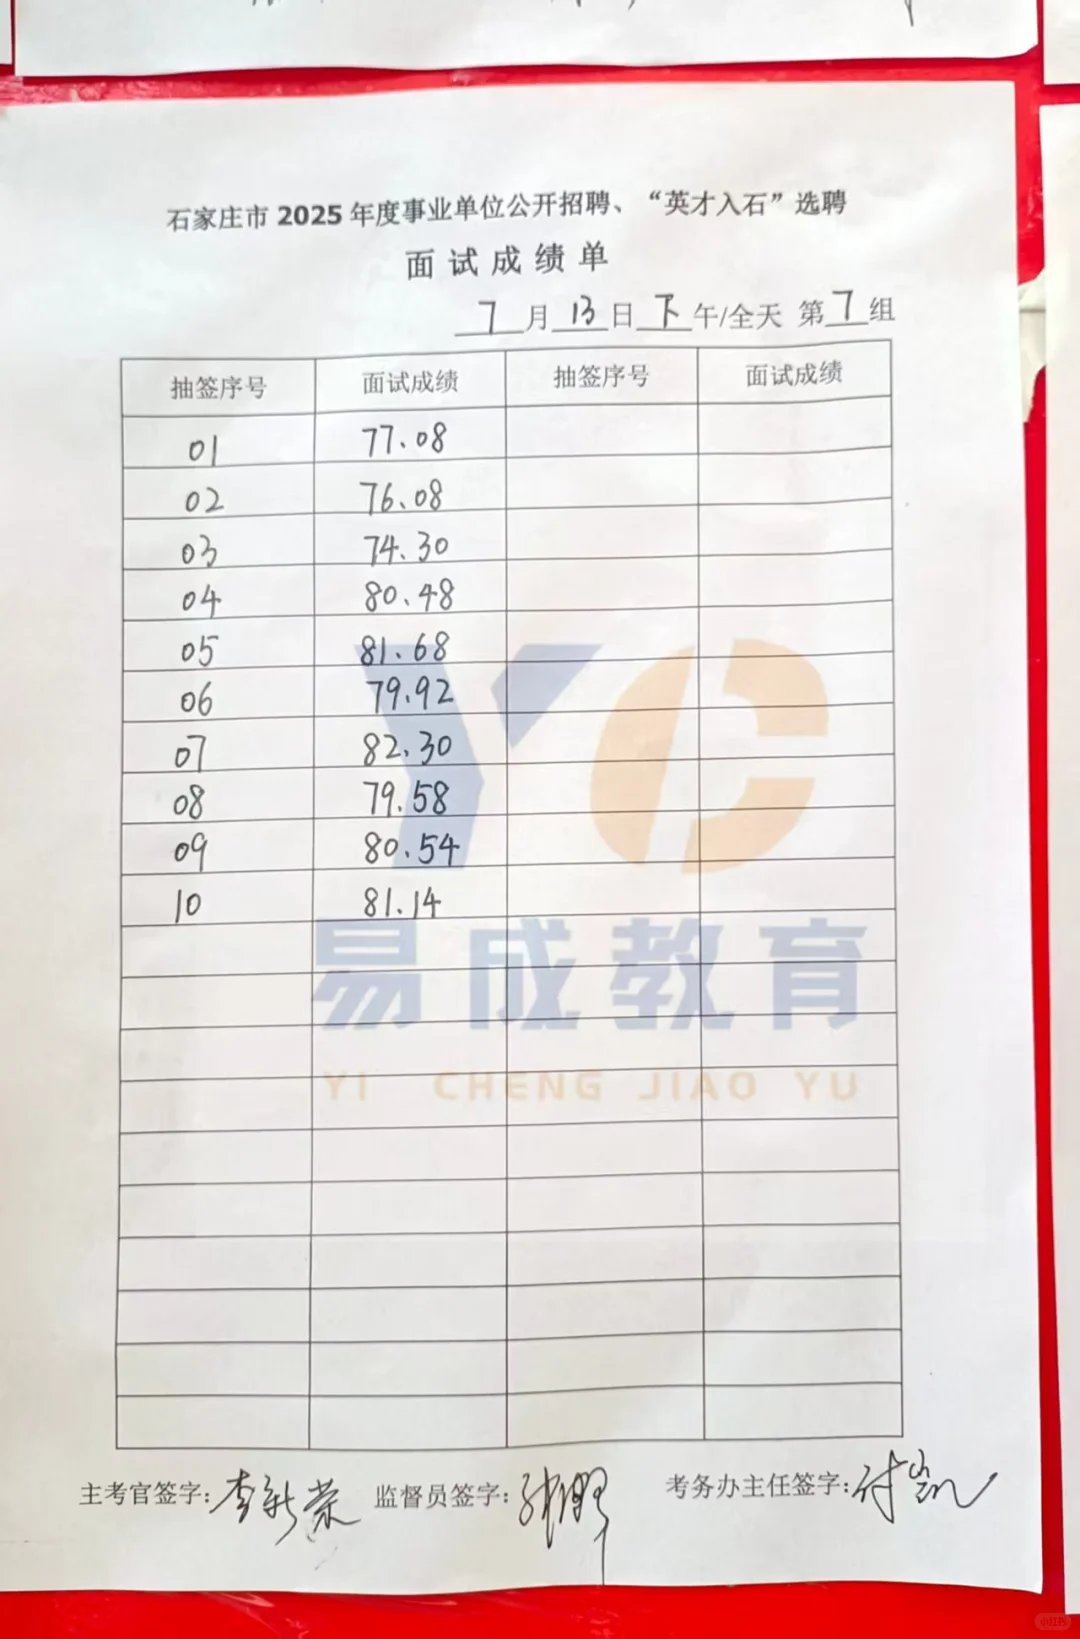 石家庄市 2025 年度事业单位公开招聘、“英才入石”选聘
面试成绩单
7月13日下午/全天 第7组
抽签序号 面试成绩 抽签序号 面试成绩
01 77.08
02 76.08
03 74.30
04 80.48
05 81.68
06 79.92
07 82.30
08 79.58
09 80.54
10 81.14
YC
易成教育
YI CHENG JIAO YU
主考官签字:李新荣 监督员签字: 考务办主任签字:付凯
小红书